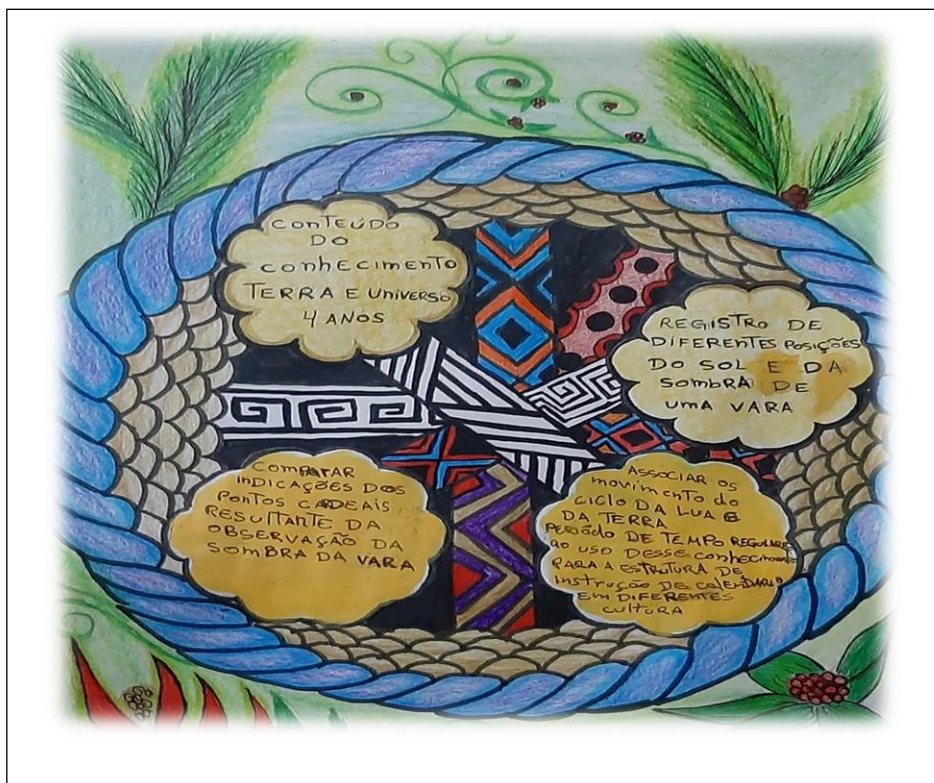 CONTEÚDO
DO
CONHECIMENTO
TERRA E UNIVERSO
4 ANOS
REGISTRO DE
DIFERENTES POSIÇÕES
DO SOL E DA
SOMBRA DE
UMA VARA
COMPARAR
INDICAÇÕES DOS
PONTOS CADEAIS
RESULTANTE DA
OBSERVAÇÃO DA
SOMBRA DA VARA
ASSOCIAR OS
MOVIMENTO DO
CICLO DA LUA E
DA TERRA
PERÍODO DE TEMPO REGULARES
AO USO DESSE CONHECIMENTO
PARA A ESTRUTURA DE
INSTRUÇÃO DE CALENDÁRIO
EM DIFERENTES
CULTURA